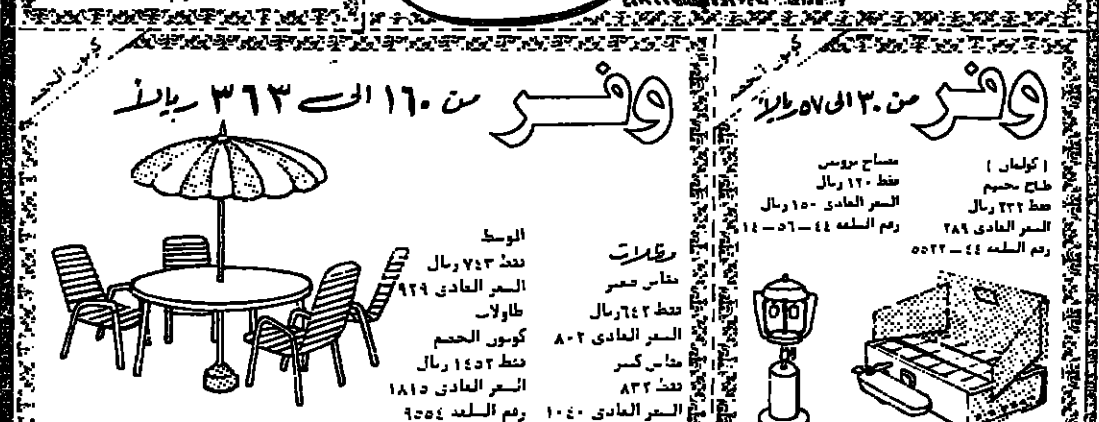 كوبون الخصم
وفر من ٣٠ الى ٥٧ ريالاً
( كولمان )
طباخ مخيم
فقط ٢٣٢ ريال
السعر العادى ٢٨٩
رقم السلعه ٤٤ – ٥٥٢٢
مصباح بروبين
فقط ١٢٠ ريال
السعر العادى ١٥٠ ريال
رقم السلعه ٤٤ – ٥٦ – ١٤
كوبون الخصم
وفر من ١٦٠ الى ٣٦٣ ريالاً
مظلات
مقاس صغير
فقط ٦٤٢ ريال
السعر العادى ٨٠٢
مقاس كبير
فقط ٨٣٢
السعر العادى ١٠٤٠
الوسط
فقط ٧٤٣ ريال
السعر العادى ٩٢٩
طاولات
كوبون الخصم
فقط ١٤٥٢ ريال
السعر العادى ١٨١٥
رقم السلعه ٩٥٥٤